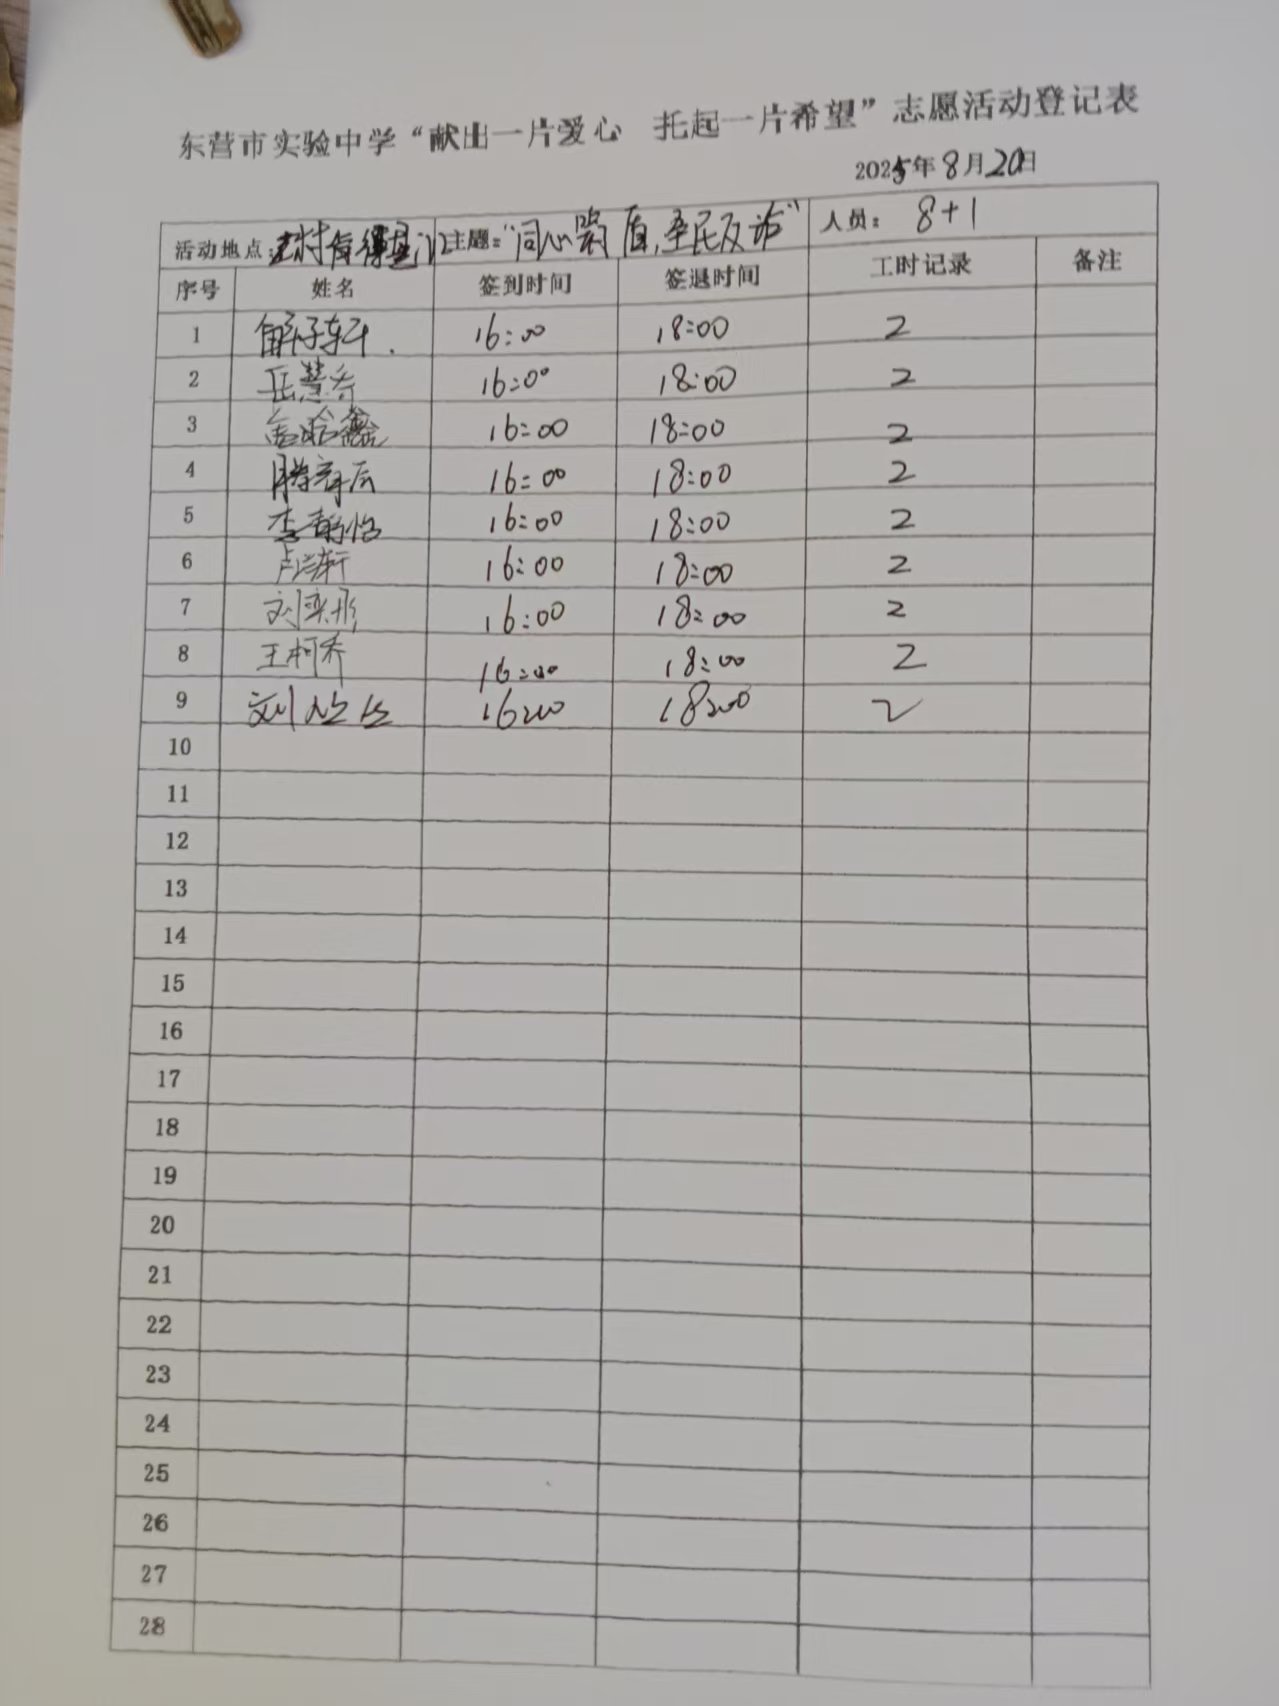 东营市实验中学“献出一片爱心 托起一片希望”志愿活动登记表
2025年8月20日
活动地点： 主题：“同心筑盾,全民反诈” 人员：8+1
序号 姓名 签到时间 签退时间 工时记录 备注
1 解子轩. 16:00 18:00 2
2 岳慧乔 16:00 18:00 2
3 16:00 18:00 2
4 16:00 18:00 2
5 李静怡 16:00 18:00 2
6 16:00 18:00 2
7 刘奕彤 16:00 18:00 2
8 王柯乔 16:00 18:00 2
9 刘 16:00 18:00 2
10
11
12
13
14
15
16
17
18
19
20
21
22
23
24
25
26
27
28